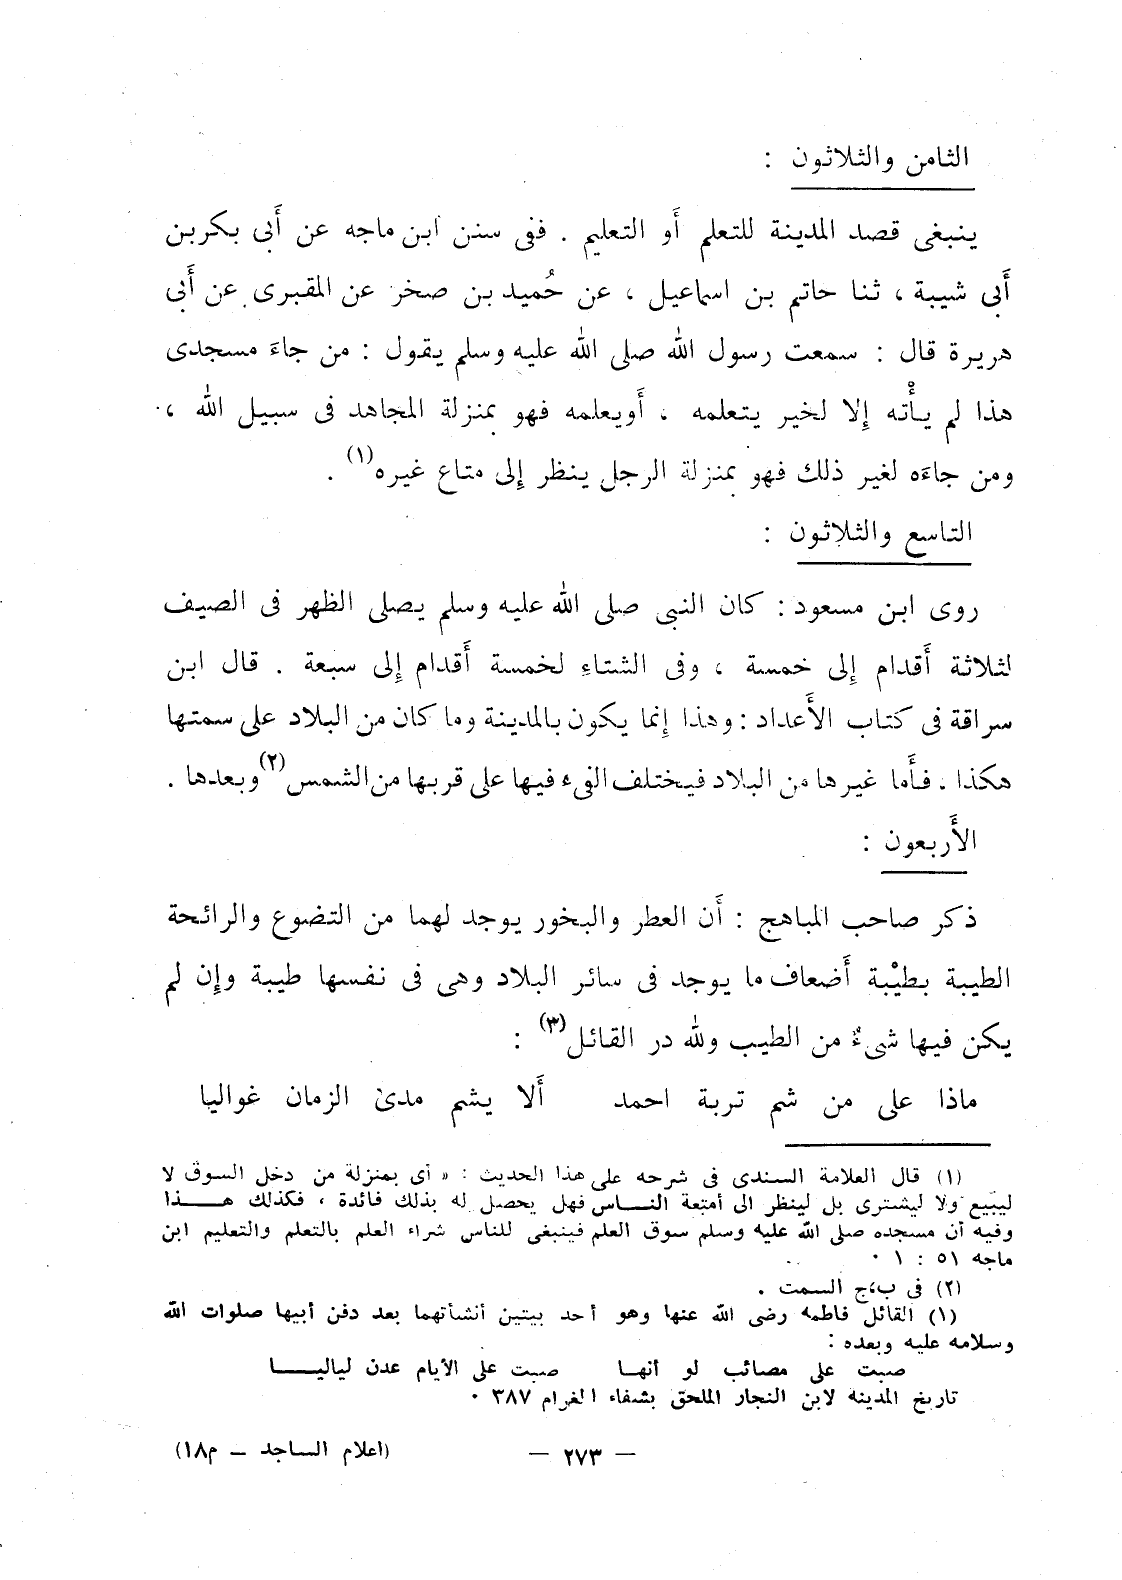 الثامن والثلاثون :
ينبغى قصد المدينة للتعلم أَو التعليم . ففى سنن ابن ماجه عن أَبى بكربن
أَبى شيبة ، ثنا حاتم بن اسماعيل ، عن حُميد بن صخر عن المقبرى عن أَبى
هريرة قال : سمعت رسول الله صلى الله عليه وسلم يقول : من جاءَ مسجدى
هذا لم يأْته إِلا لخير يتعلمه ، أَويعلمه فهو بمنزلة المجاهد فى سبيل الله ،
ومن جاءَه لغير ذلك فهو بمنزلة الرجل ينظر إِلى متاع غيره(١) .
التاسع والثلاثون :
روى ابن مسعود : كان النبى صلى الله عليه وسلم يصلى الظهر فى الصيف
لثلاثة أَقدام إِلى خمسة ، وفى الشتاءِ لخمسة أَقدام إِلى سبعة . قال ابن
سراقة فى كتاب الأَعداد : وهذا إِنما يكون بالمدينة وما كان من البلاد على سمتها
هكذا . فأَما غيرها من البلاد فيختلف الفىء فيها على قربها من الشمس(٢) وبعدها .
الأَربعون :
ذكر صاحب المباهج : أَن العطر والبخور يوجد لهما من التضوع والرائحة
الطيبة بطيْبة أَضعاف ما يوجد فى سائر البلاد وهى فى نفسها طيبة وإِن لم
يكن فيها شىءٌ من الطيب ولله در القائل(٣) :
ماذا على من شم تربة احمد أَلا يشم مدى الزمان غواليا
(١) قال العلامة السندى فى شرحه على هذا الحديث : « أى بمنزلة من دخل السوق لا
ليبيع ولا ليشترى بل لينظر الى أمتعة النـاس فهل يحصل له بذلك فائدة ، فكذلك هـــذا
وفيه أن مسجده صلى الله عليه وسلم سوق العلم فينبغى للناس شراء العلم بالتعلم والتعليم ابن
ماجه ٥١ : ١ ٠
(٢) فى ب،ج السمت .
(١) القائل فاطمة رضى الله عنها وهو أحد بيتين أنشأتهما بعد دفن أبيها صلوات الله
وسلامه عليه وبعده :
صبت على مصائب لو أنهـا صبت على الأيام عدن لياليـــا
تاريخ المدينة لابن النجار الملحق بشفاء الغرام ٣٨٧ ٠
— ٢٧٣ —
(اعلام الساجد — م١٨)